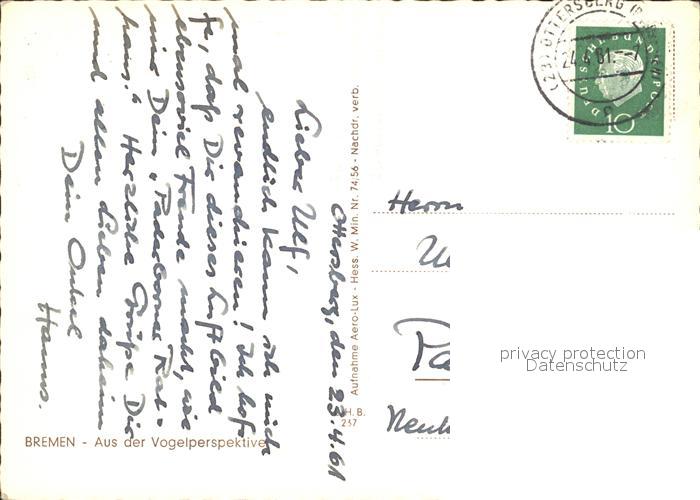 Ottersberg, den 23.4.61
Lieber Ulf,
endlich kann ich mich
mal revanchieren! Ich hof-
fe, daß Dir dieses Luftbild
ebensoviel Freude macht, wie
mir Dein „Paderborner Rat-
haus." Herzliche Grüße Dir
und allen Lieben daheim
Dein Onkel
Hanns.
BREMEN - Aus der Vogelperspektive
Aufnahme Aero-Lux - Hess. W. Min. Nr. 74/56 - Nachdr. verb.
H. B.
237
(23) OTTERSBERG
24.4.61.--7
DEUTSCHE BUNDESPOST
10
Herrn
privacy protection
Datenschutz